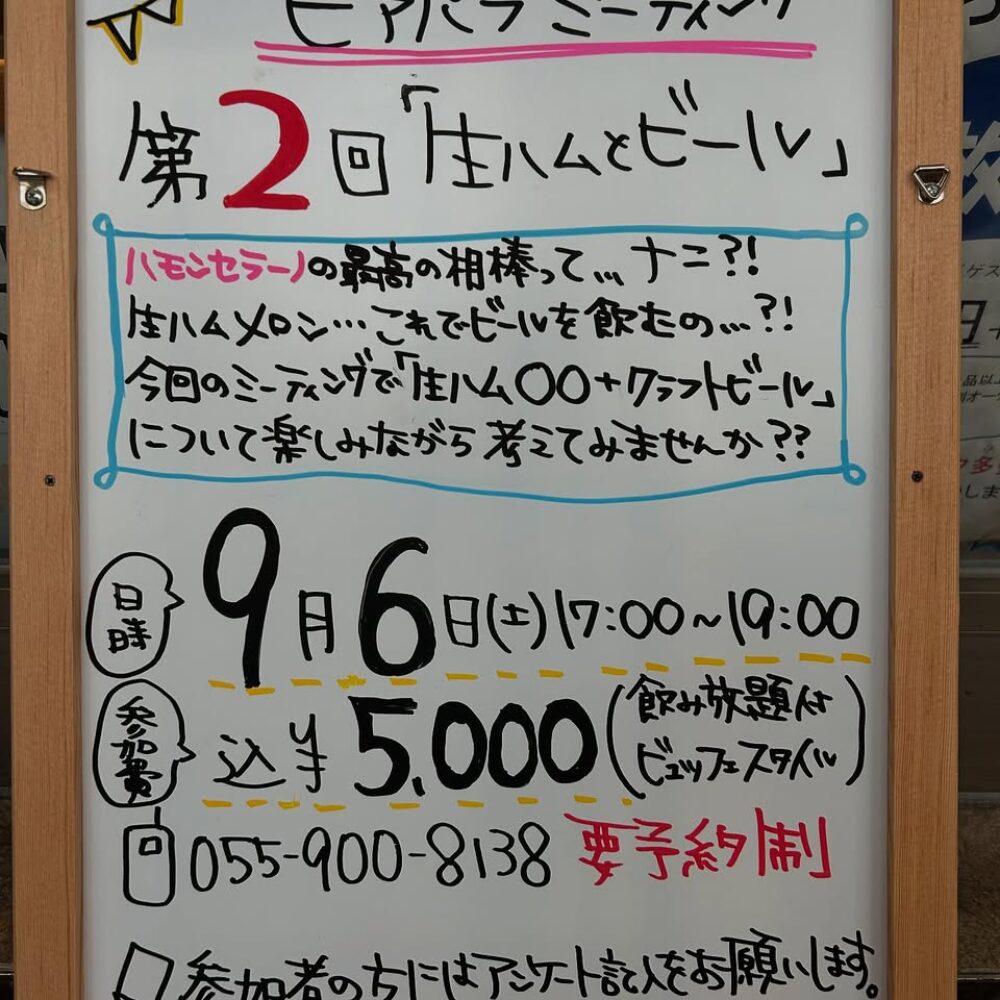 ビアパラミーティング
第2回「生ハムとビール」
ハモンセラーノの最高の相棒って… ナニ?!
生ハムメロン…これでビールを飲むの…?!
今回のミーティングで「生ハム〇〇+クラフトビール」
について楽しみながら考えてみませんか??
日時
9月6日(土)17:00~19:00
参加費
込¥5,000(飲み放題付
ビュッフェスタイル)
055-900-8138 要予約制
参加者の方にはアンケート記入をお願いします。